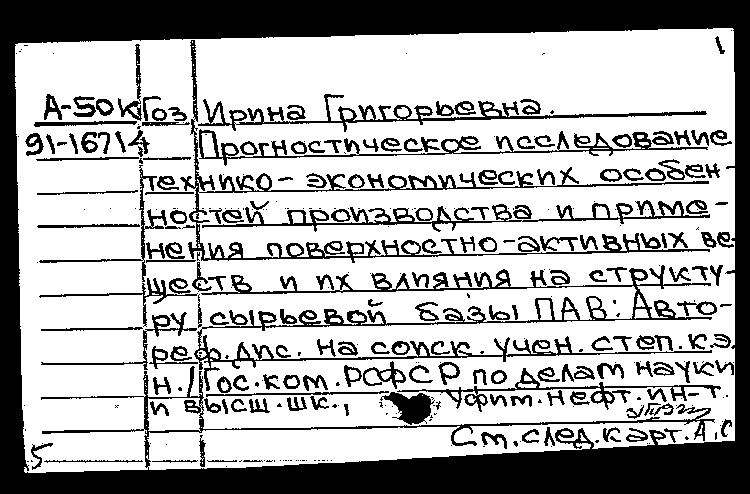 1
А-50к Гоз Ирина Григорьевна.
91-16714 Прогностическое исследование
технико-экономических особен-
ностей производства и приме-
нения поверхностно-активных ве-
ществ и их влияния на структу-
ру сырьевой базы ПАВ: Авто-
реф. дис. на соиск. учен. степ. к.э.
н./Гос. ком. РСФСР по делам науки
и высш. шк., Уфим. нефт. ин-т.
См. след. карт. А.С
5